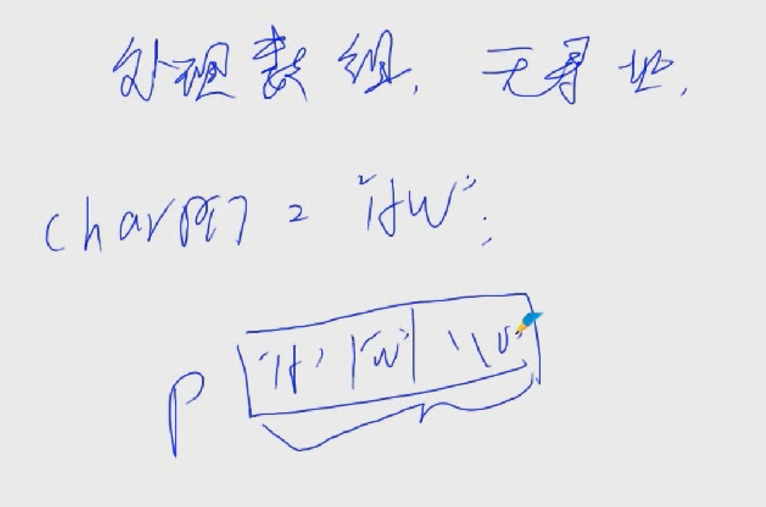 处理数组，无寻址，
char p[] = "HW";
p 'H' 'W' '\0'